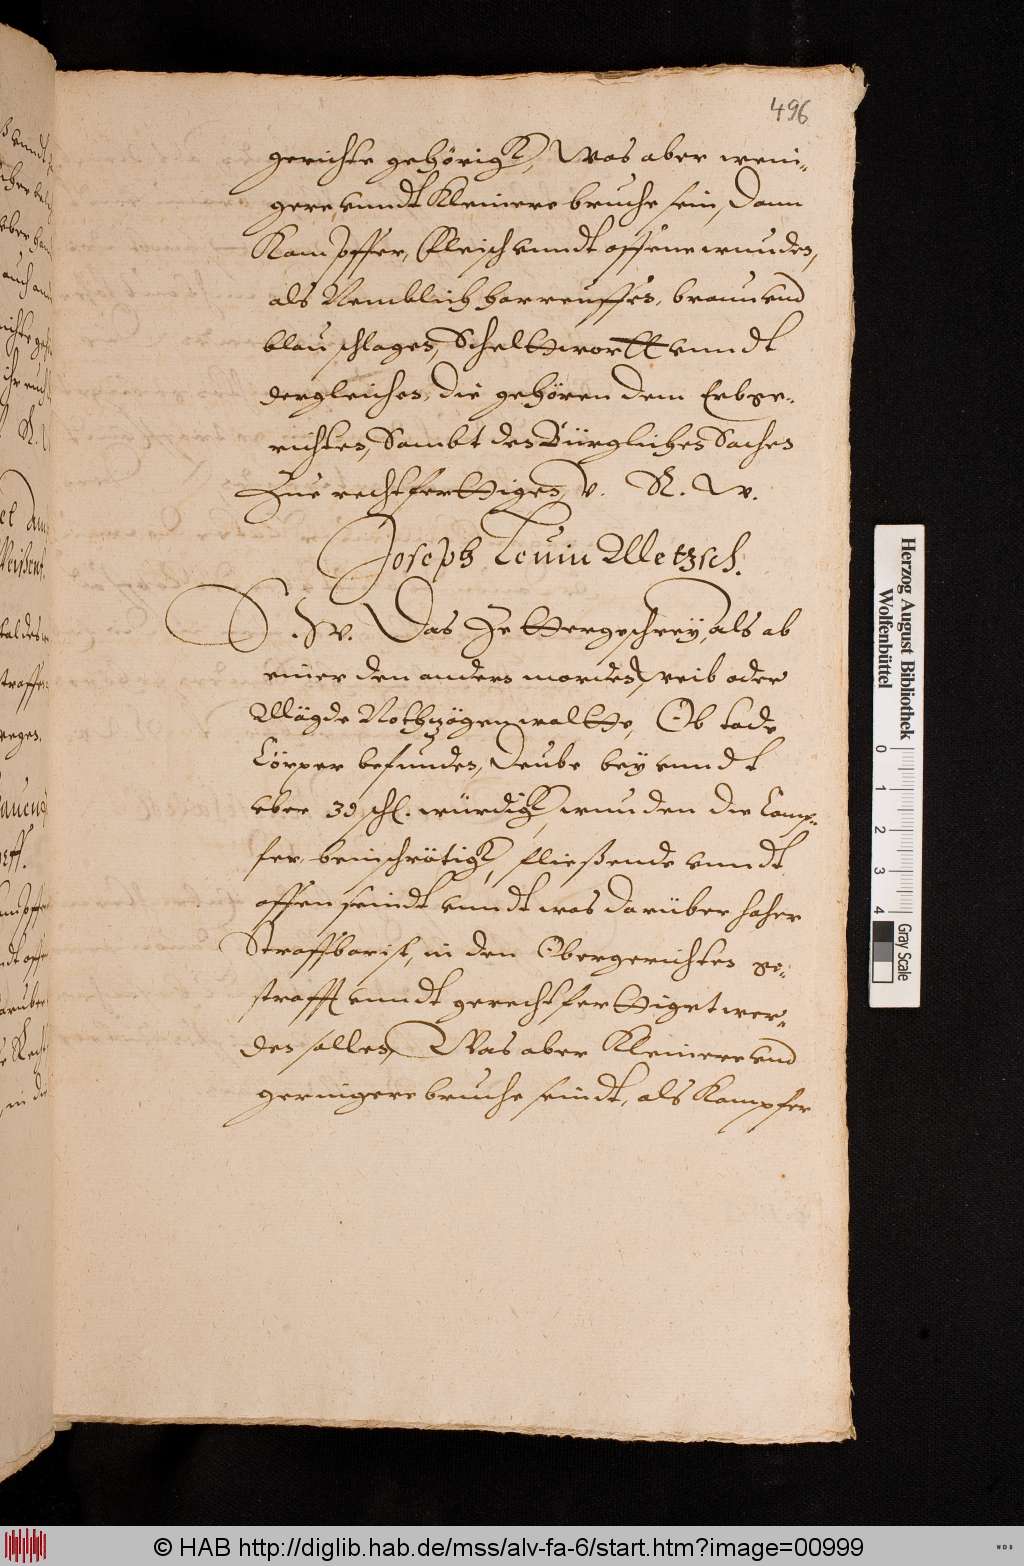 496
gerichte gehörigk, Was aber weni-
gere, unndt Kleinere bruche sein, dann
Kampffer, Fleisch unndt offene wunden,
als Nemblich harreuffen, braun und
blau schlagen, Scheltwortt unndt
dergleichen, die gehören dem Erbge-
richten, Sambt den Bürglichen Sachen
Zue rechtferttigen, V. R. W.
Joseph Levin Metzsch.
S. W. Das Zettergeschrey, als ob
einer den andern morden, weib oder
Mägde Nothzögen woltte, Ob tode
Cörper befunden, Deube bey unndt
uber 3 schl. würdigk, wunden die Camp-
fer, beinschrötigk, fließende unndt
offen seindt unndt was darüber hoher
Straffbar ist, in den Obergerichten ge-
strafft unndt gerechtferttiget wer-
den sollen, Was aber Kleinere und
geringere bruche seindt, als Kampfer
Herzog August Bibliothek
Wolfenbüttel
0 1 2 3 4
Gray Scale
© HAB http://diglib.hab.de/mss/alv-fa-6/start.htm?image=00999